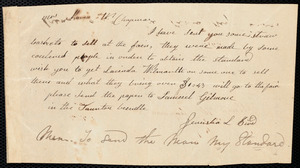 Mrs Maria W. Chapman
I have sent you some straw
to sell at the fair, they were made by some
coulered people in order to obtain the Standard
wish you to get Lucinda Wilmarth or some one to sell
them and what they bring over $1.43 will go to the fair
please send the papers to Samuel Gilmore
in the Taunton bundle.
L Bird
Mean to send the man my Standard